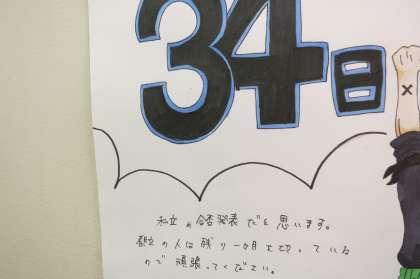 34日
私立の合否発表だと思います。
都立の人は残り一ヶ月大切っている
ので頑張ってください。